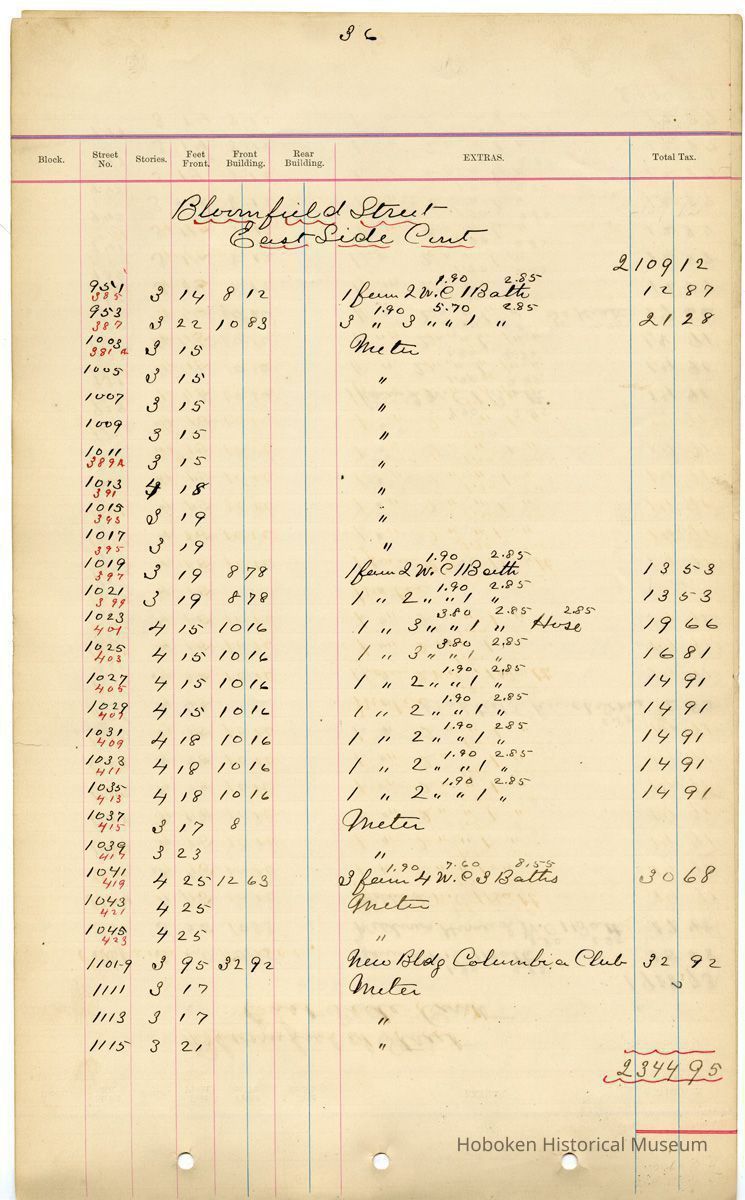 36
Block. Street No. Stories. Feet Front. Front Building. Rear Building. EXTRAS. Total Tax.
Bloomfield Street
East Side Cont
2109 12
1.90 2.85
951 385 3 14 8 12 1 fam 2 W.C 1 Bath 12 87
1.90 5.70 2.85
953 387 3 22 10 83 3 " 3 " " 1 " 21 28
1003 381A 3 15 Meter
1005 3 15 "
1007 3 15 "
1009 3 15 "
1011 389A 3 15 "
1013 391 4 18 "
1015 393 3 19 "
1017 395 3 19 "
1.90 2.85
1019 397 3 19 8 78 1 fam 2 W.C 1 Bath 13 53
1.90 2.85
1021 399 3 19 8 78 1 " 2 " " 1 " 13 53
3.80 2.85 2.85
1023 401 4 15 10 16 1 " 3 " " 1 " Hose 19 66
3.80 2.85
1025 403 4 15 10 16 1 " 3 " " 1 " 16 81
1.90 2.85
1027 405 4 15 10 16 1 " 2 " " 1 " 14 91
1.90 2.85
1029 407 4 15 10 16 1 " 2 " " 1 " 14 91
1.90 285
1031 409 4 18 10 16 1 " 2 " " 1 " 14 91
1.90 2.85
1033 411 4 18 10 16 1 " 2 " " 1 " 14 91
1.90 2.85
1035 413 4 18 10 16 1 " 2 " " 1 " 14 91
1037 415 3 17 8 Meter
1039 417 3 23 "
1.90 7.60 8.55
1041 419 4 25 12 63 3 fam 4 W.C 3 Baths 30 68
1043 421 4 25 Meter
1045 423 4 25 "
1101-9 3 95 32 92 New Bldg Columbia Club 32 92
1111 3 17 Meter
1113 3 17 "
1115 3 21 "
2344 95
Hoboken Historical Museum